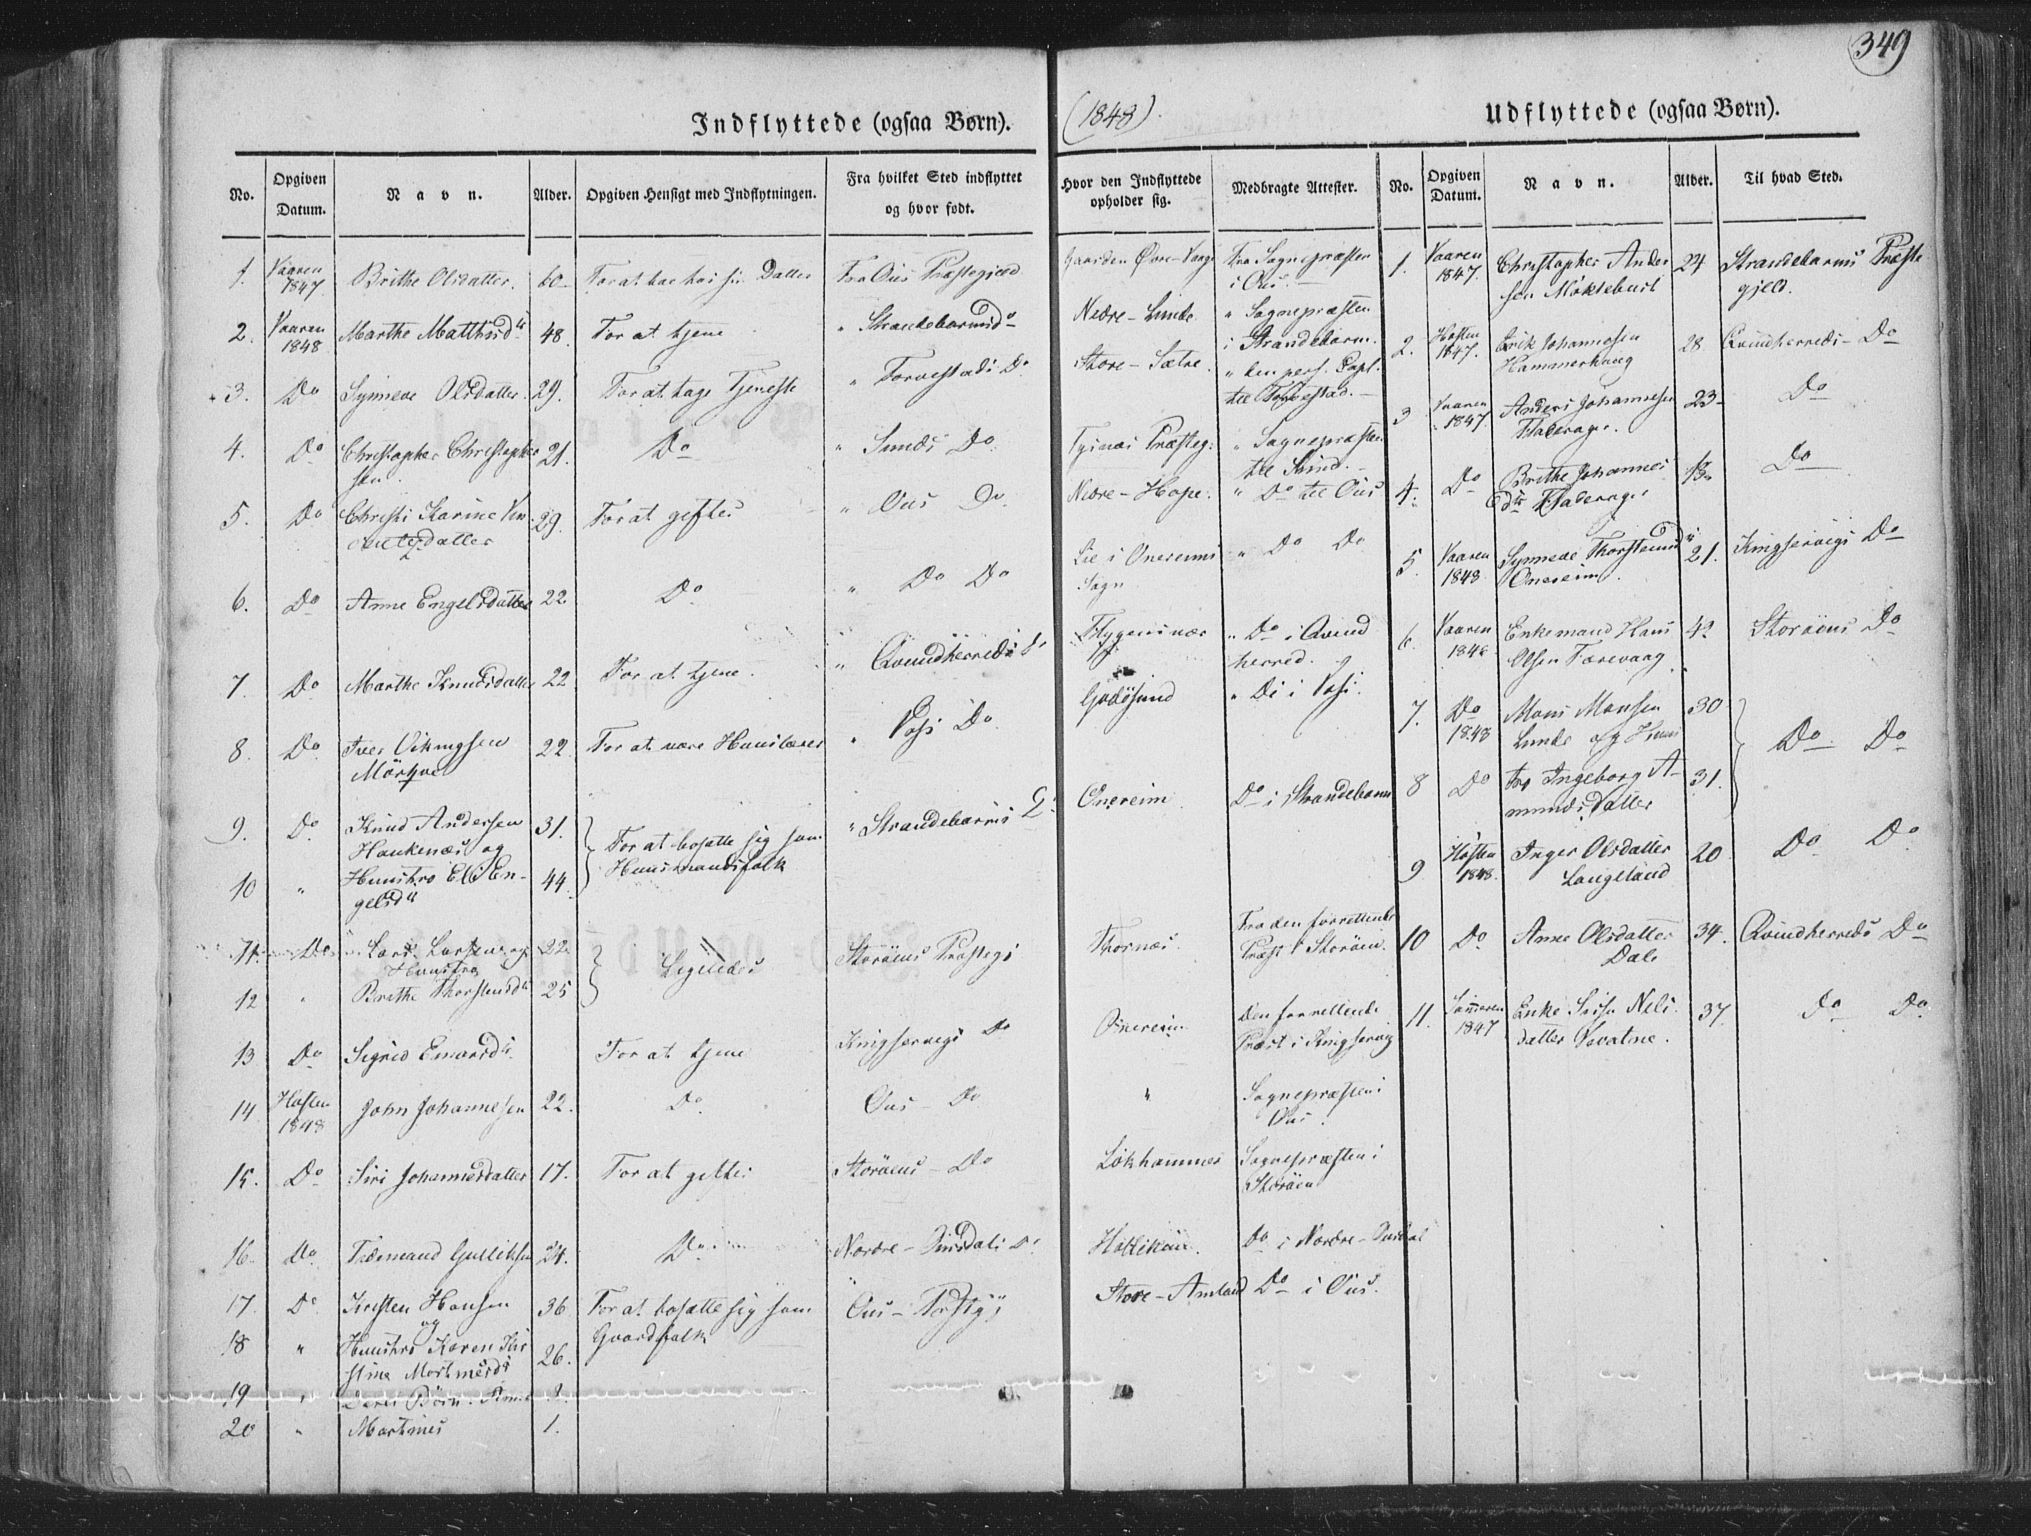 349
Indflyttede (ogsaa Børn).
(1848)
Udflyttede (ogsaa Børn).
No. Opgiven Datum. Navn. Alder. Opgiven Hensigt med Indflytningen. Fra hvilket Sted indflyttet og hvor født. Hvor den Indflyttede opholder sig. Medbragte Attester.
1. Vaaren 1847 Brithe Olsdatter. 60 For at boe hos sin Datter Fra Ous Præstegjeld Gaarden Øvre-Vaage Fra Sognepræsten i Ous.
2. Vaaren 1848 Marthe Matthisd. 48. For at tjene " Strandebarms Do Nedre-Lunde " Sognepræsten i Strandebarm.
3. Do Synneve Olsdatter. 29. For at tage Tjeneste " Torvestads Do Store-Sætre " den pers. Capl. til Torvestad.
4. Do Christopher Christophersen. 21. Do " Sunds Do Tysnæs Præsteg. " Sognepræsten til Sund.
5. Do Christi Karine 29. For at giftes " Ous Do Nedre-Hope. " Do til Ous
6. Do Anne Engelsdatter 22 Do " Do Do Lie i Onereims Sogn " Do Do
7. Do Marthe Knudsdatter 22 For at tjene. " Qvindherreds Flygensnær " Do i Qvindherred.
8. Do Iver Vikingsen Mørkve 22. For at være Huuslærer " Voss Do Godøsund " Do i Voss.
9. Do Knud Andersen Haukenæs og 31. For at bosætte sig som Huusmandsfolk " Strandebarms Onereim Do i Strandebarm
10 " Huustro Eli Engelsd. 44.
11. Do Lars Larsen og Huustro 22. Ligeledes Storøens Præsteg. Thornæs. Fra den forrettende Præst i Storøen.
12 " Brithe Thorstensd. 25
13 Do Sigrid For at tjene Kingservigs Do Onereim Den forrettende Præst i Kingservig
14 Høsten 1848 John Johannesen 22. Do Ous - Do " Sognepræsten i Ous.
15. Do Siri Johannesdatter 17. For at giftes Storøens - Do Løkhammer Sognepræsten i Storøen
16 Do Tidemand Gulliksen 24. Do Nordre-Undals Do Do i Nordre-Undal
17. Do Kristen Hansen og 36 For at bosætte sig som Gaardsfolk Ous - Præstgj. Store-Amland Do i Ous.
18 " Huustro Karen Kirstine Mortensd. 26.
19 " Deres Børn
20 " Martines 1.
No. Opgiven Datum. Navn. Alder. Til hvad Sted.
1. Vaaren 1847. Christopher Andersen Møklebust 24 Strandebarms Præstegjeld.
2. Høsten 1847. Erik Johannesen Hammerhaug 28. Qvindherreds - Do
3 Vaaren 1847. Anders Johannesen Fladerager. 23 Do
4. Do Brithe Johannesd. Fladerager Do
5. Vaaren 1848 Synneve Thorstensd. Onereim. 21. Kingservigs Do
6. Vaaren 1848 Enkemand Hans Olsen Færevaag 42 Storøens Do
7. Do 1848 Mons Monsen Lunde og Huus 30 Do Do
8 Do tro Ingeborg Amundsdatter 31.
9 Høsten 1848. Inger Olsdatter Langeland 20 Do Do
10 Do Anne Olsdatter Dale 34. Qvindherreds Do
11. Sommeren 1847 Enke Nelsdatter 37. Do Do